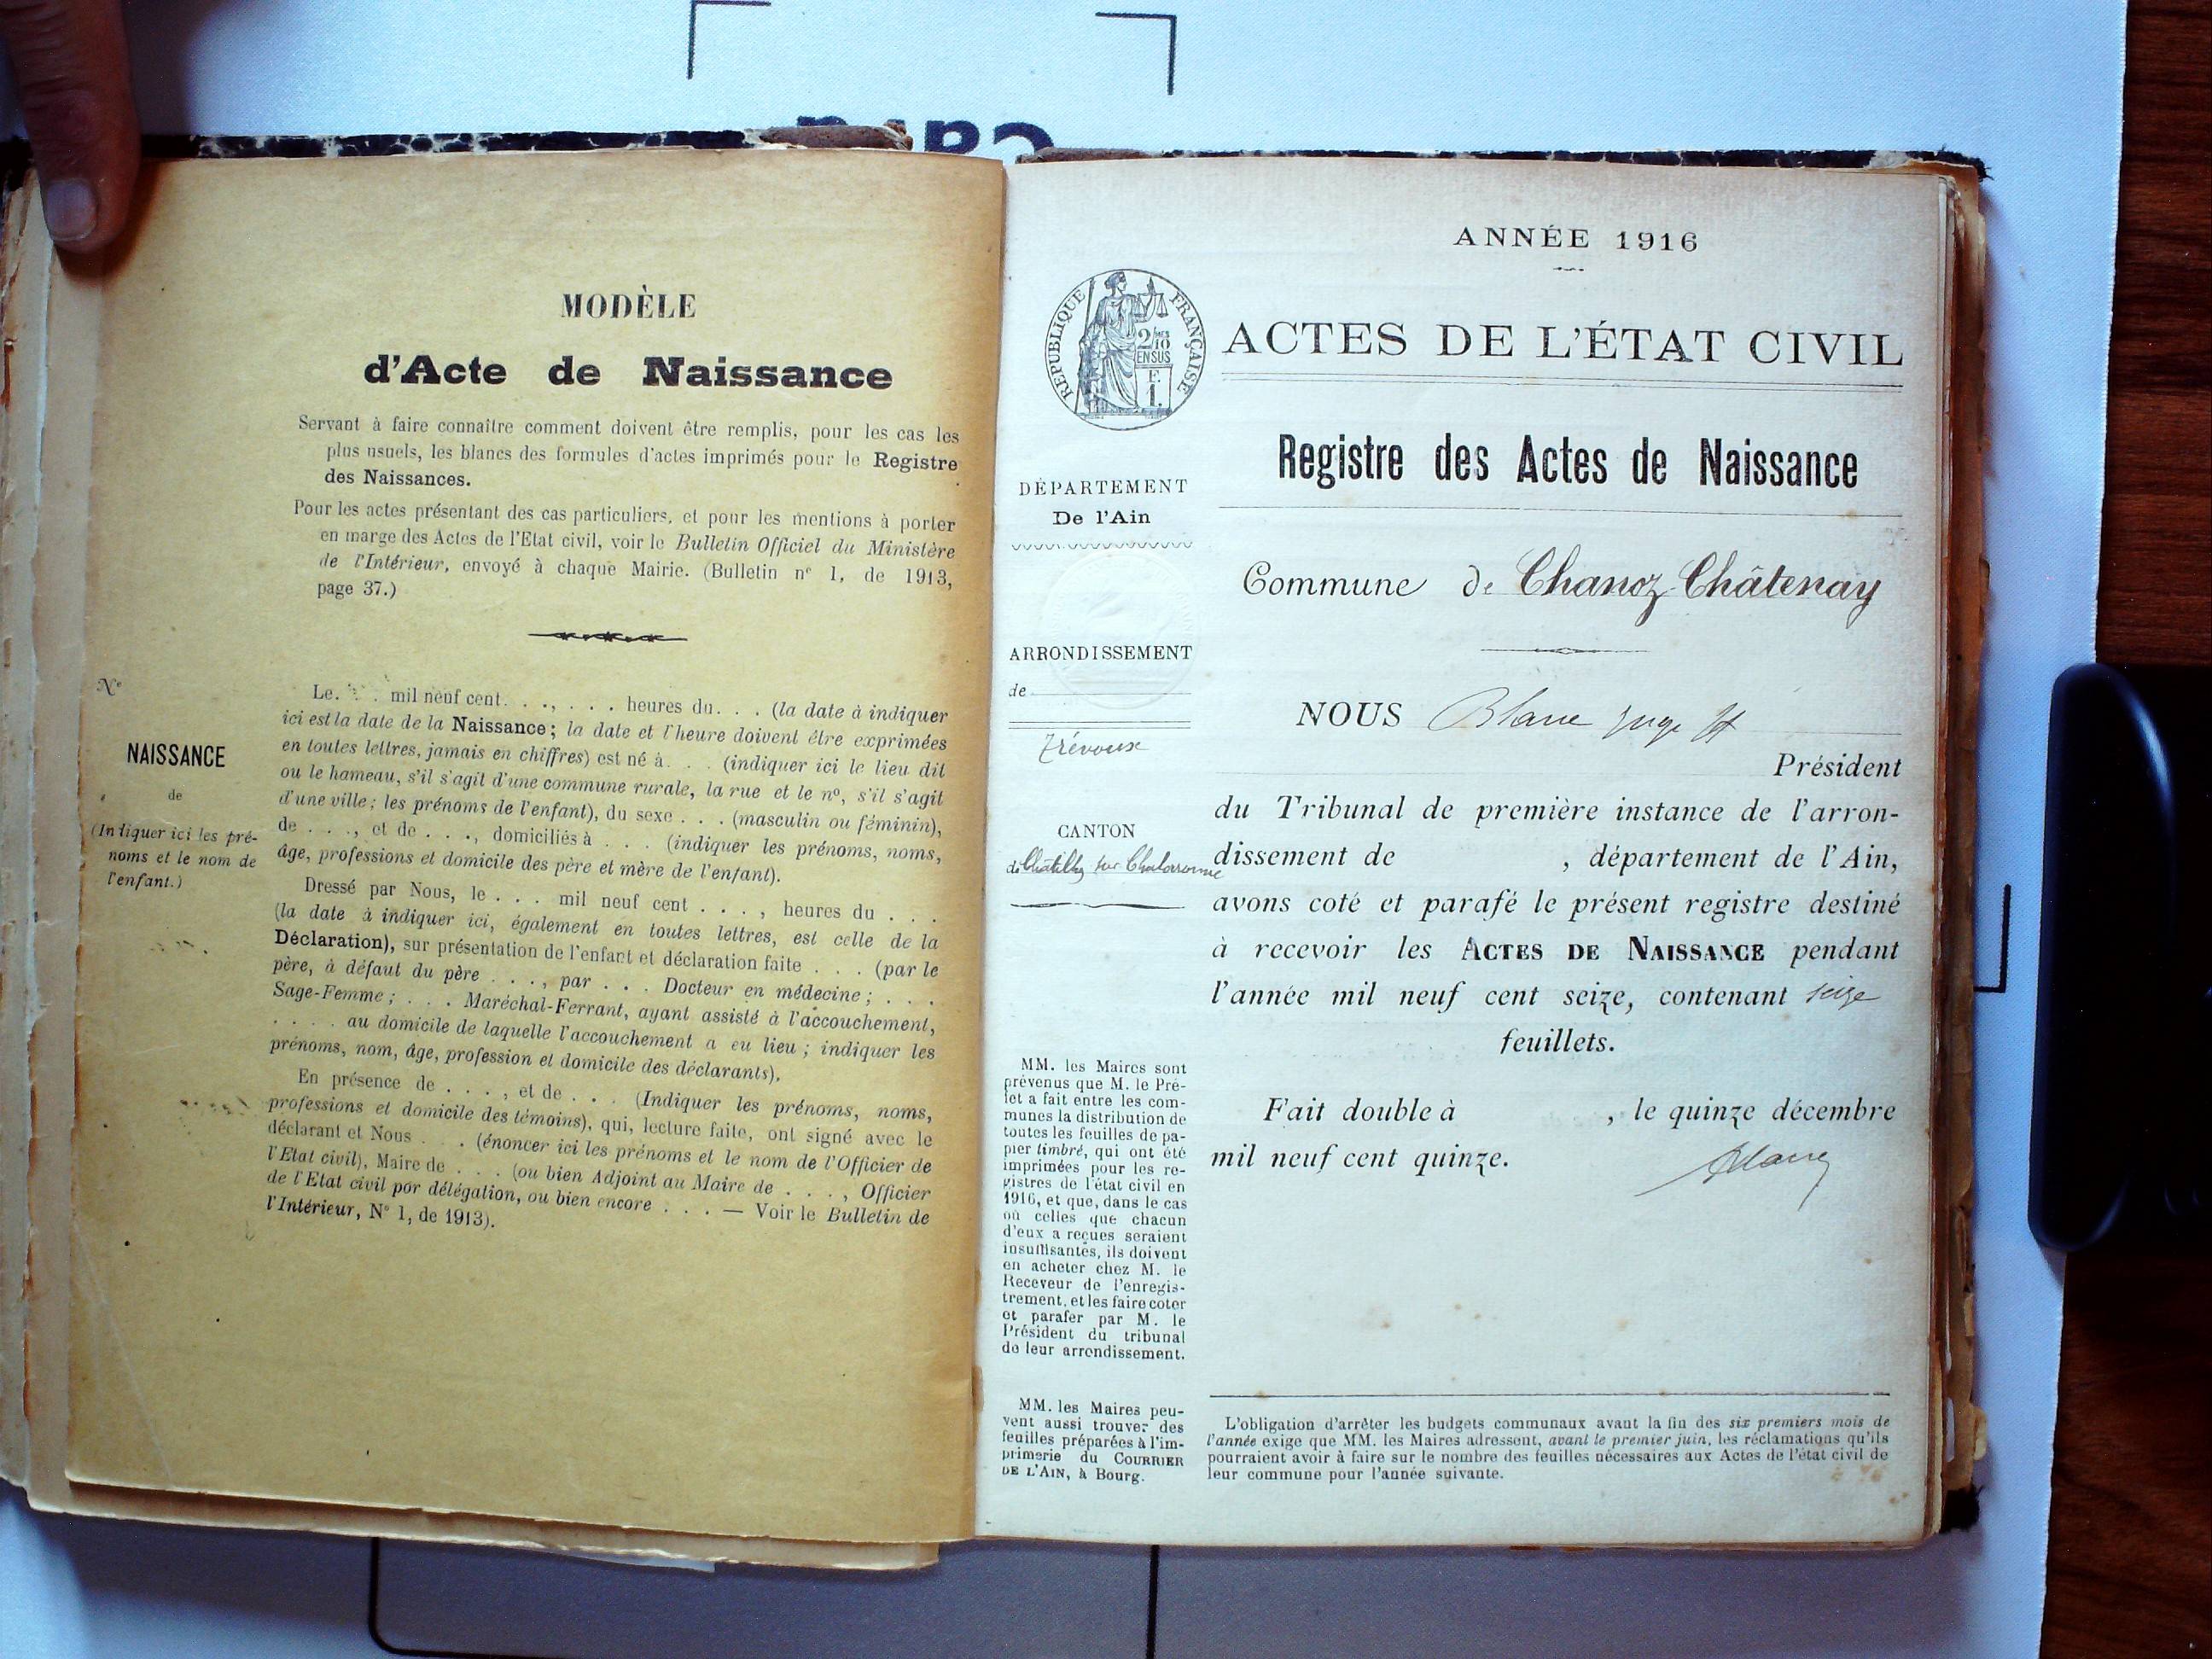 MODÈLE
d'Acte de Naissance
Servant à faire connaître comment doivent être remplis, pour les cas les
plus usuels, les blancs des formules d'actes imprimés pour le Registre
des Naissances.
Pour les actes présentant des cas particuliers, et pour les mentions à porter
en marge des Actes de l'Etat civil, voir le Bulletin Officiel du Ministère
de l'Intérieur, envoyé à chaque Mairie. (Bulletin n° 1, de 1913,
page 37.)
N°
NAISSANCE
de
(Indiquer ici les pré-
noms et le nom de
l'enfant.)
Le. . . mil neuf cent. . ., . . . heures du. . . (la date à indiquer
ici est la date de la Naissance; la date et l'heure doivent être exprimées
en toutes lettres, jamais en chiffres) est né à. . . (indiquer ici le lieu dit
ou le hameau, s'il s'agit d'une commune rurale, la rue et le n°, s'il s'agit
d'une ville; les prénoms de l'enfant), du sexe . . . (masculin ou féminin),
de . . ., et de . . ., domiciliés à . . . (indiquer les prénoms, noms,
âge, professions et domicile des père et mère de l'enfant).
Dressé par Nous, le . . . mil neuf cent . . . , heures du . . .
(la date à indiquer ici, également en toutes lettres, est celle de la
Déclaration), sur présentation de l'enfant et déclaration faite . . . (par le
père, à défaut du père . . ., par . . . Docteur en médecine; . . .
Sage-Femme; . . . Maréchal-Ferrant, ayant assisté à l'accouchement,
. . . . au domicile de laquelle l'accouchement a eu lieu; indiquer les
prénoms, nom, âge, profession et domicile des déclarants).
En présence de . . . , et de . . . (Indiquer les prénoms, noms,
professions et domicile des témoins), qui, lecture faite, ont signé avec le
déclarant et Nous . . . (énoncer ici les prénoms et le nom de l'Officier de
l'Etat civil), Maire de . . . (ou bien Adjoint au Maire de . . . , Officier
de l'Etat civil par délégation, ou bien encore . . . — Voir le Bulletin de
l'Intérieur, N° 1, de 1913).
ANNÉE 1916
RÉPUBLIQUE FRANÇAISE
2/10
EN SUS
F.
1.
ACTES DE L'ÉTAT CIVIL
Registre des Actes de Naissance
DÉPARTEMENT
De l'Ain
Commune de Chanoz-Châtenay
ARRONDISSEMENT
de
Trévoux
CANTON
de Châtillon sur Chalaronne
NOUS Blanc juge
Président
du Tribunal de première instance de l'arron-
dissement de , département de l'Ain,
avons coté et parafé le présent registre destiné
à recevoir les ACTES DE NAISSANCE pendant
l'année mil neuf cent seize, contenant seize
feuillets.
Fait double à , le quinze décembre
mil neuf cent quinze.
Blanc
MM. les Maires sont
prévenus que M. le Pré-
fet a fait entre les com-
munes la distribution de
toutes les feuilles de pa-
pier timbré, qui ont été
imprimées pour les re-
gistres de l'état civil en
1916, et que, dans le cas
où celles que chacun
d'eux a reçues seraient
insuffisantes, ils doivent
en acheter chez M. le
Receveur de l'enregis-
trement, et les faire coter
et parafer par M. le
Président du tribunal
de leur arrondissement.
MM. les Maires peu-
vent aussi trouver des
feuilles préparées à l'im-
primerie du COURRIER
DE L'AIN, à Bourg.
L'obligation d'arrêter les budgets communaux avant la fin des six premiers mois de
l'année exige que MM. les Maires adressent, avant le premier juin, les réclamations qu'ils
pourraient avoir à faire sur le nombre des feuilles nécessaires aux Actes de l'état civil de
leur commune pour l'année suivante.